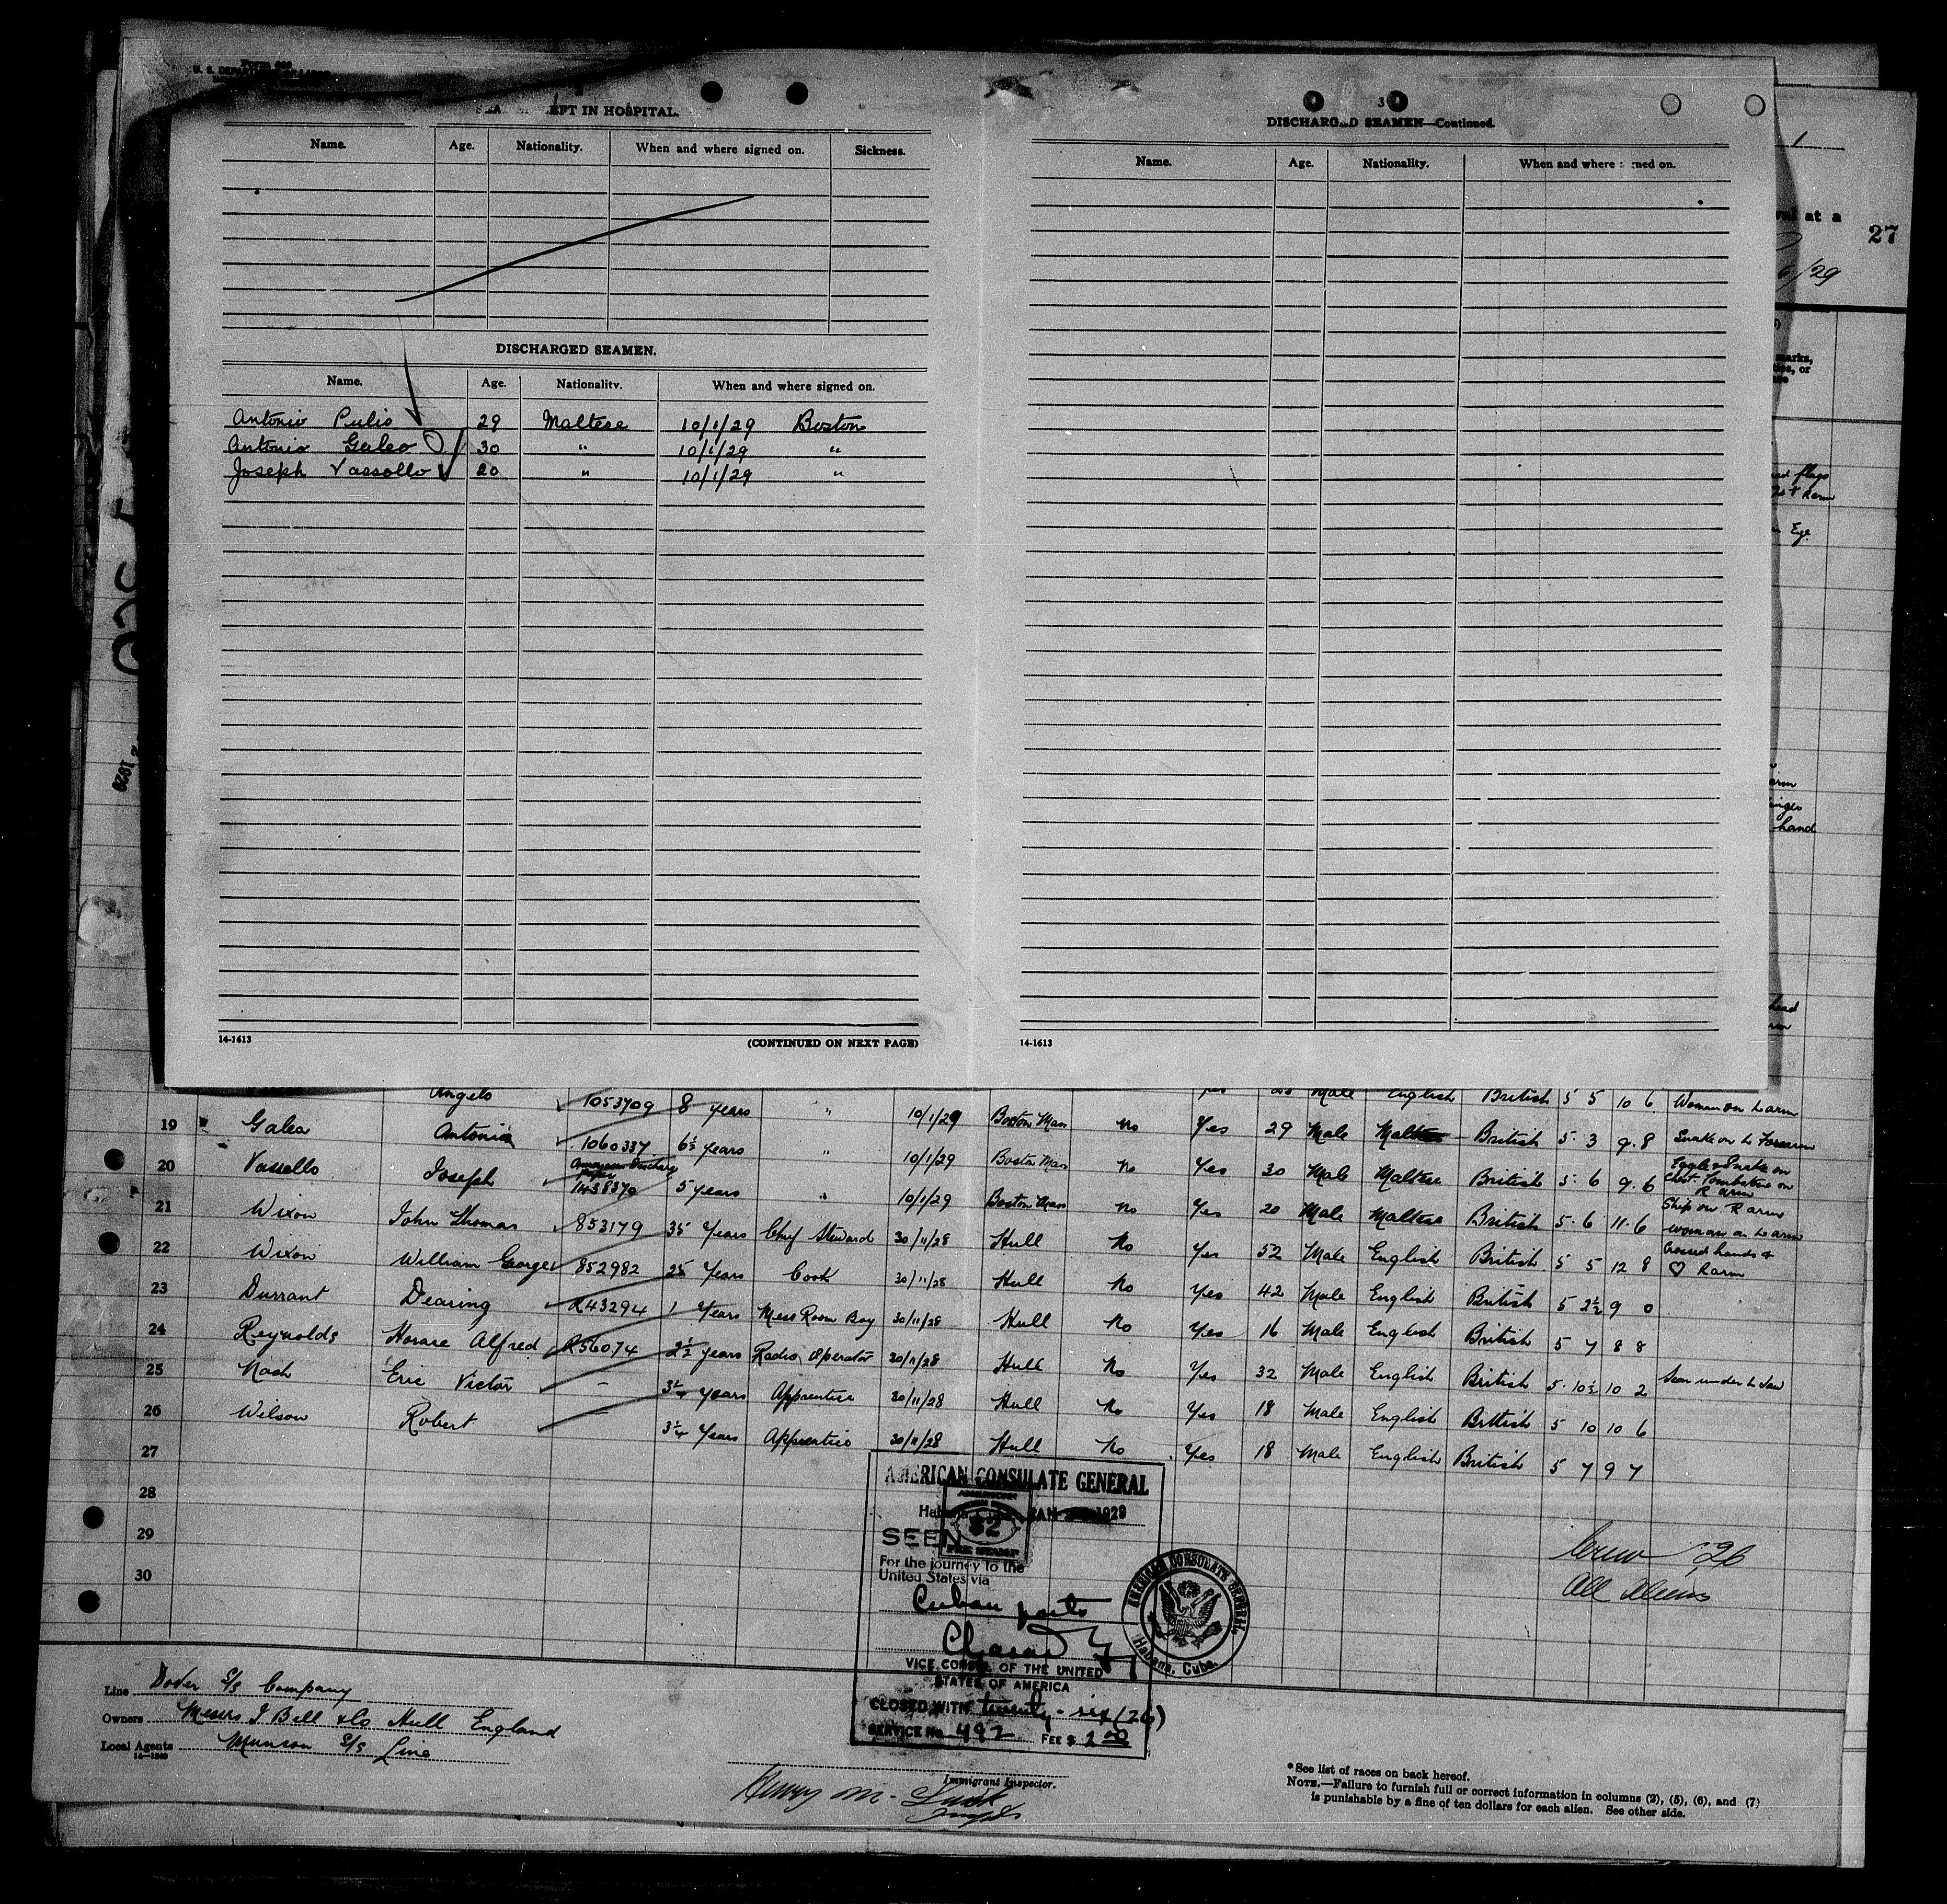 Form 689
U. S. DEPARTMENT OF LABOR
LEFT IN HOSPITAL.
Name. Age. Nationality. When and where signed on. Sickness.
DISCHARGED SEAMEN.
Name. Age. Nationality. When and where signed on.
Antonio Pulis 29 Maltese 10/1/29 Boston
Antonio Galea 30 " 10/1/29 "
Joseph Vassollo 20 " 10/1/29 "
14-1613 (CONTINUED ON NEXT PAGE)
3
DISCHARGED SEAMEN—Continued.
Name. Age. Nationality. When and where signed on.
14-1613
1
val at a
27
6/29
marks,
ties, or
flags
+ R arm
Eye
arm
hand
head
Angelo 1053709 8 years " 10/1/29 Boston Mass No Yes 29 Male Maltese British 5 3 9.8 Snake on L Forearm
English British 5 5 10 6 Woman on L arm
19 Galea Antonio 1060337 6½ years " 10/1/29 Boston Mass No Yes 30 Male Maltese British 5 6 9.6 Eagle & Snake on Chest Tombstone on R arm
20 Vassello Joseph 1438370 5 years " 10/1/29 Boston Mass No Yes 20 Male Maltese British 5 6 11.6 Ship on R arm woman on L arm
21 Wixon John Thomas 853179 35 Years Chief Steward 30/11/28 Hull No Yes 52 Male English British 5 5 12 8 Crossed hands & ♡ R arm
22 Wixon William George 852982 25 Years Cook 30/11/28 Hull No Yes 42 Male English British 5 2½ 9 0
23 Durrant Dearing R43294 1 Years Mess Room Boy 30/11/28 Hull No Yes 16 Male English British 5 7 8 8
24 Reynolds Horace Alfred R56074 2½ years Radio Operator 30/11/28 Hull No Yes 32 Male English British 5 10½ 10 2 Scar under L Jaw
25 Nash Eric Victor - 3¼ years Apprentice 30/11/28 Hull No Yes 18 Male English British 5 10 10 6
26 Wilson Robert - 3¼ years Apprentice 30/11/28 Hull No Yes 18 Male English British 5 7 9 7
27
28
29
30
Crew 26
All Aliens
AMERICAN CONSULATE GENERAL
Habana JAN 1929
SEEN
$2
FEE STAMP
For the journey to the
United States via
Cuban ports
VICE CONSUL OF THE UNITED
STATES OF AMERICA
CLOSED WITH twenty-six (26)
SERVICE No. 492 FEE $ 2.00
AMERICAN CONSULATE GENERAL
Habana, Cuba.
Line Dover S/S Company
Owners Messrs J Bell & Co Hull England
Local Agents Munson S/S Line
14-1240
Henry M.
Immigrant Inspector.
*See list of races on back hereof.
NOTE.—Failure to furnish full or correct information in columns (2), (5), (6), and (7)
is punishable by a fine of ten dollars for each alien. See other side.